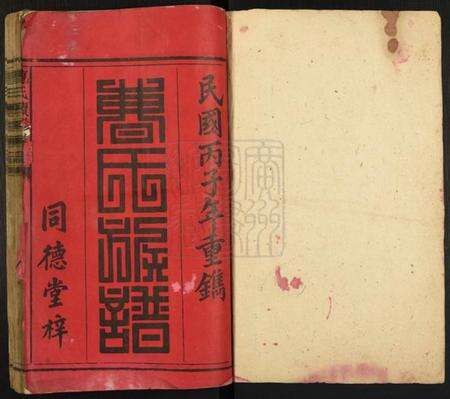 民國丙子年重鐫
氏族譜
同德堂梓
廣州